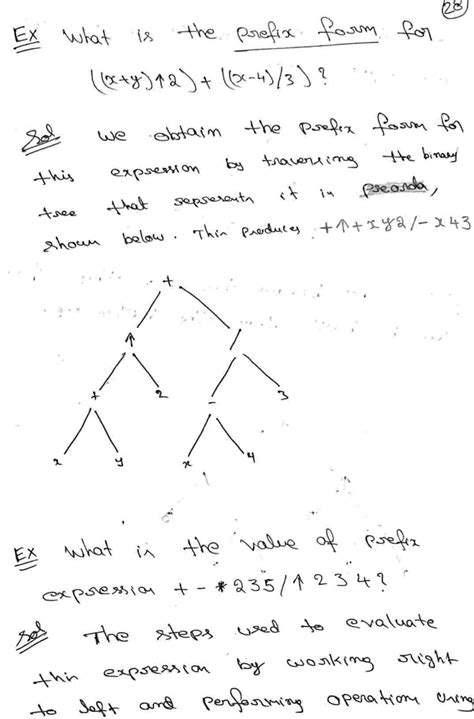 28
Ex What is the prefix form for
((x+y)↑2) + ((x-4)/3) ?
Sol We obtain the prefix form for
this expression by traversing the binary
tree that represents it in preorder,
shown below. This produces +↑+xy2/-x43
+
↑ /
+ 2 - 3
x y x 4
Ex What is the value of prefix
expression + - * 235/↑234?
Sol The steps used to evaluate
this expression by working right
to left and performing operation using